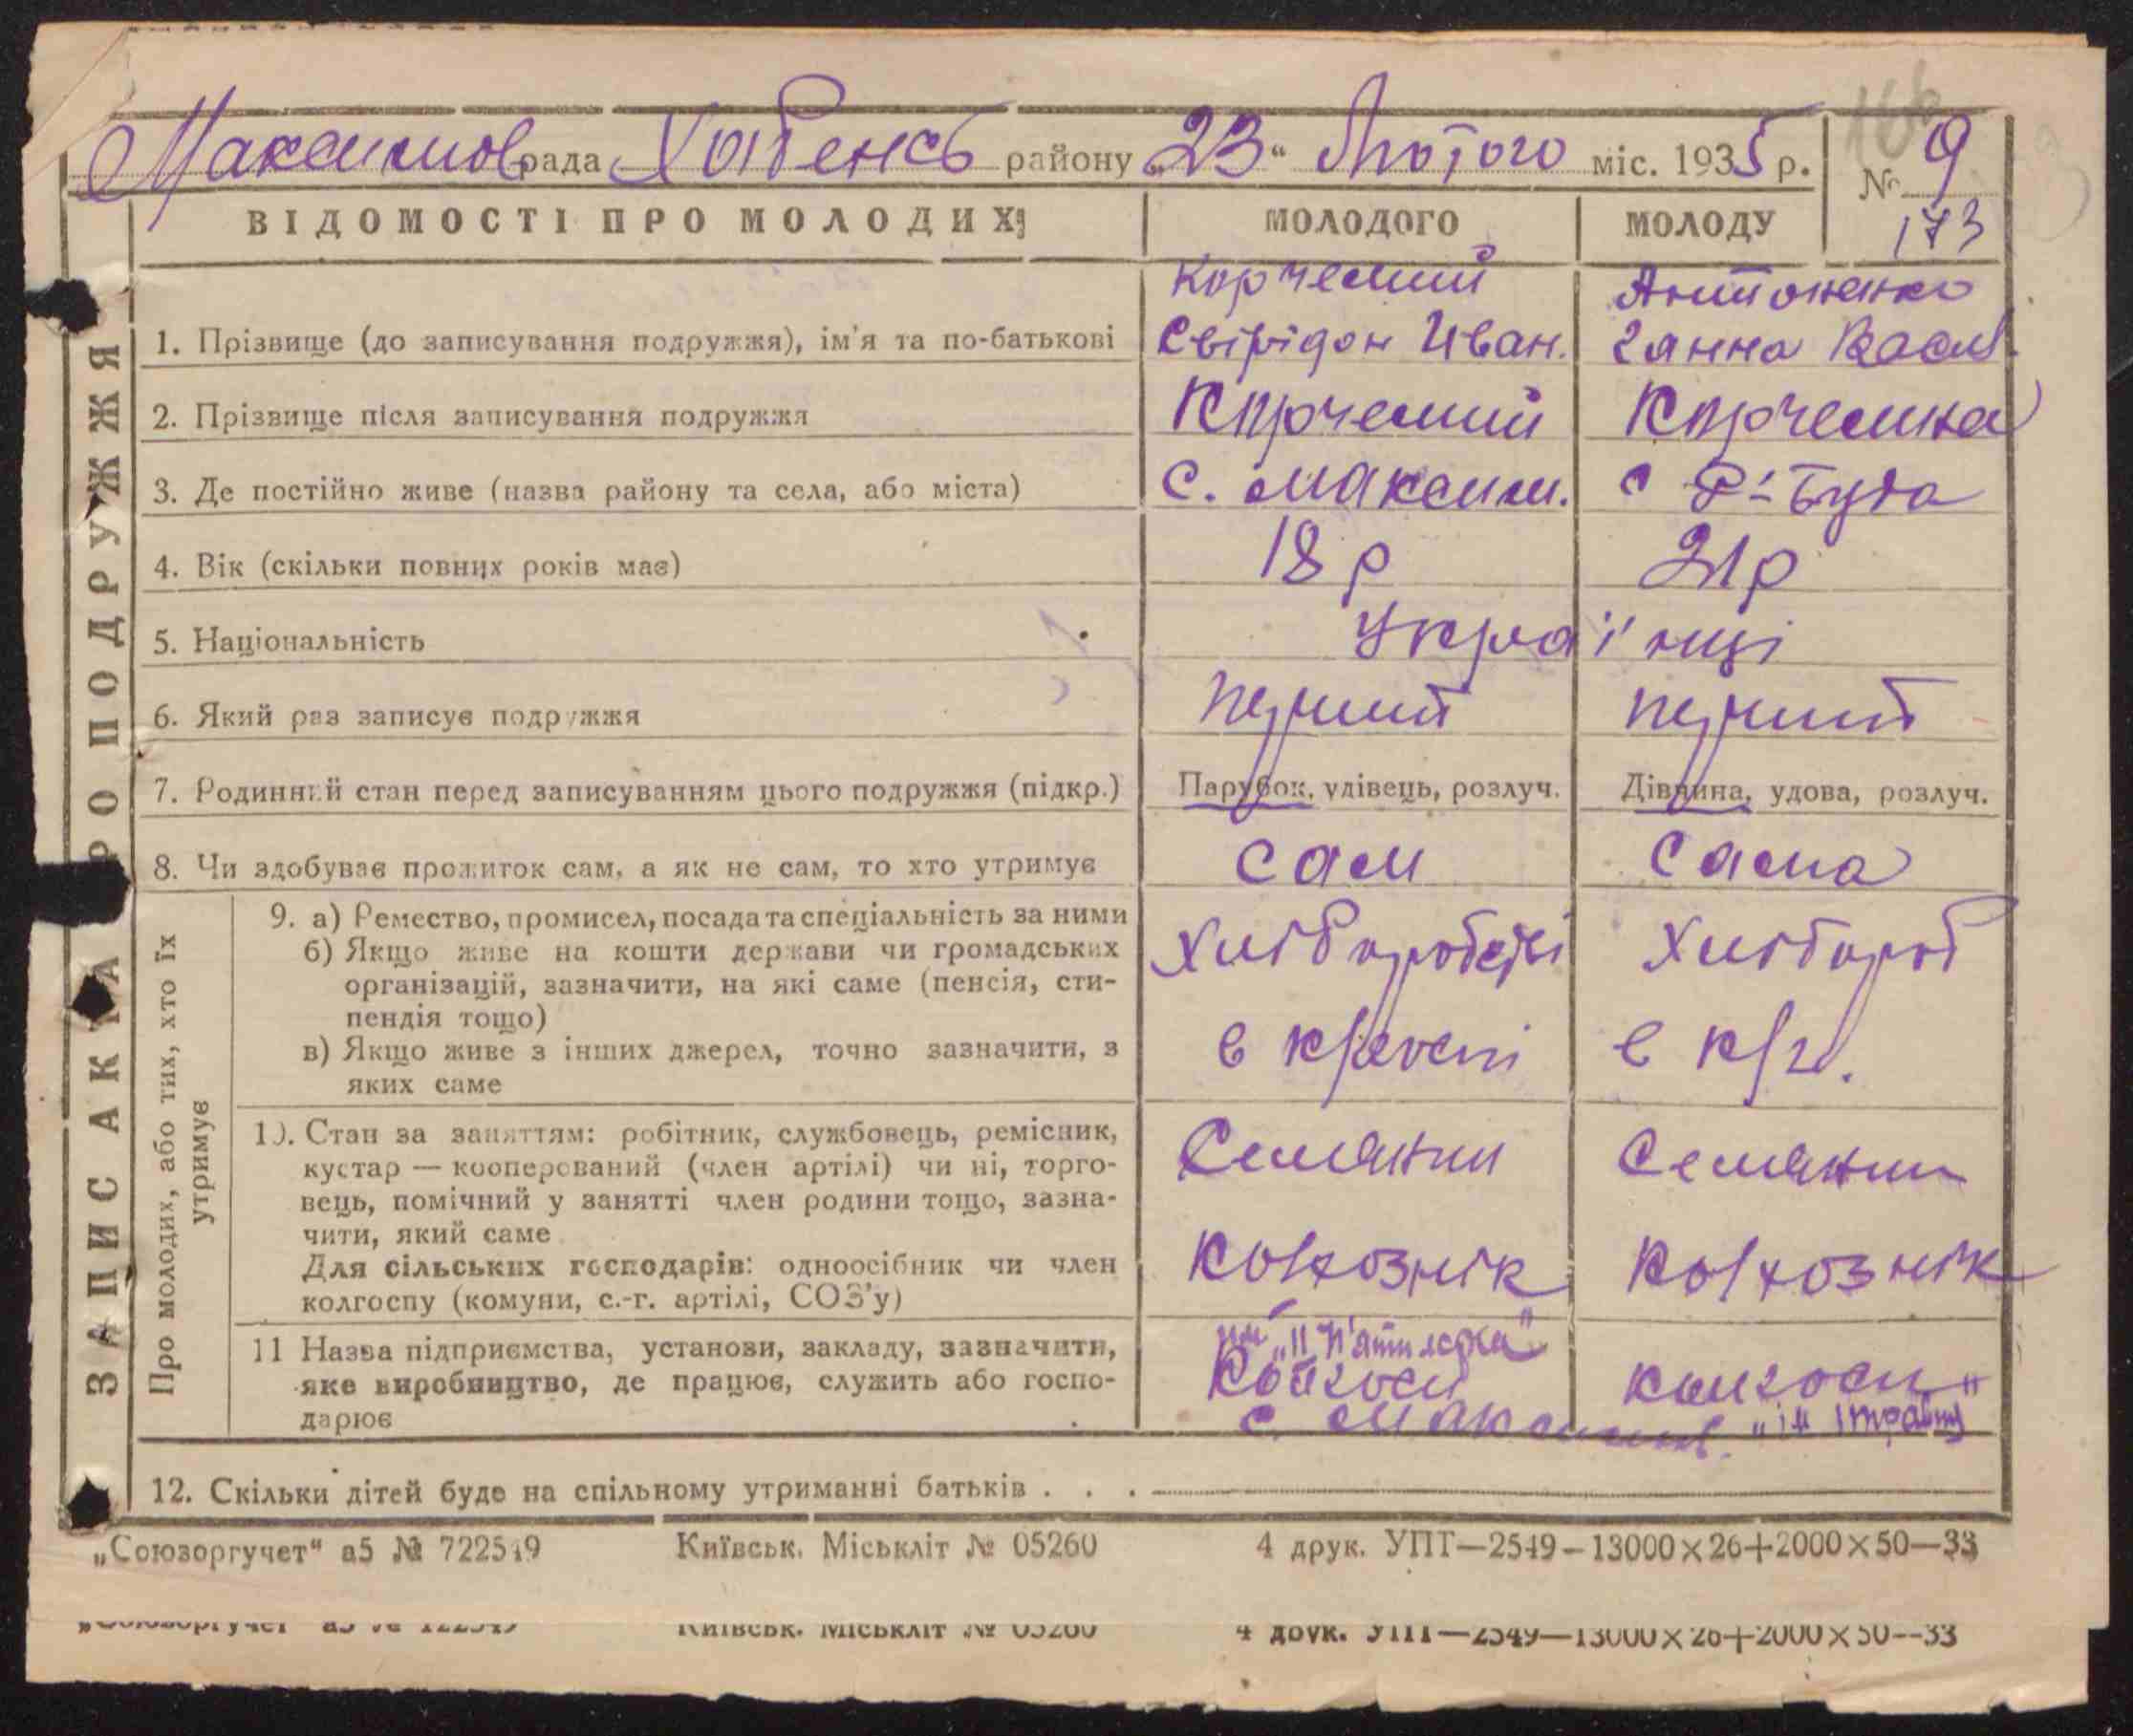 Максимов рада Хабенсь району „23“ Лютого міс. 1935 р.
№ 9
173
ВІДОМОСТІ ПРО МОЛОДИХ МОЛОДОГО МОЛОДУ
ЗАПИС АКТА ПРО ПОДРУЖЖЯ
Корчемний Антоненко
1. Прізвище (до записування подружжя), ім'я та по-батькові Свірідон Иван. Ганна Васил.
2. Прізвище після записування подружжя Корчемний Корчемна
3. Де постійно живе (назва району та села, або міста) с. Максим. с Р-Буда
4. Вік (скільки повних років має) 18 р 21 р
5. Національність Українці
6. Який раз записує подружжя перший перший
7. Родинний стан перед записуванням цього подружжя (підкр.) Парубок, удівець, розлуч. Дівчина, удова, розлуч.
8. Чи здобуває прожиток сам, а як не сам, то хто утримує сам сама
Про молодих, або тих, хто їх
утримує
9. а) Ремество, промисел, посада та спеціальність за ними
б) Якщо живе на кошти держави чи громадських Хлібороб
організацій, зазначити, на які саме (пенсія, сти-
пендія тощо)
в) Якщо живе з інших джерел, точно зазначити, з в в к/г.
яких саме
10. Стан за заняттям: робітник, службовець, ремісник,
кустар — кооперований (член артілі) чи ні, торго- Селянин Селянин
вець, помічний у занятті член родини тощо, зазна-
чити, який саме
Для сільських господарів: одноосібник чи член Колхознік Колхознік
колгоспу (комуни, с.-г. артілі, СОЗ'у)
им „II П'ятилєтка“
11 Назва підприємства, установи, закладу, зазначити,
яке виробництво, де працює, служить або госпо- Колгосп колгосп
дарює с. Максимов. „ім
12. Скільки дітей буде на спільному утриманні батьків . . .
„Союзоргучет“ а5 № 722549 Київськ. Міськліт № 05260 4 друк. УПТ—2549—13000×26+2000×50—33
„Союзоргучет“ а5 № 722549 Київськ. Міськліт № 05260 4 друк. УПТ—2549—13000×26+2000×50—33